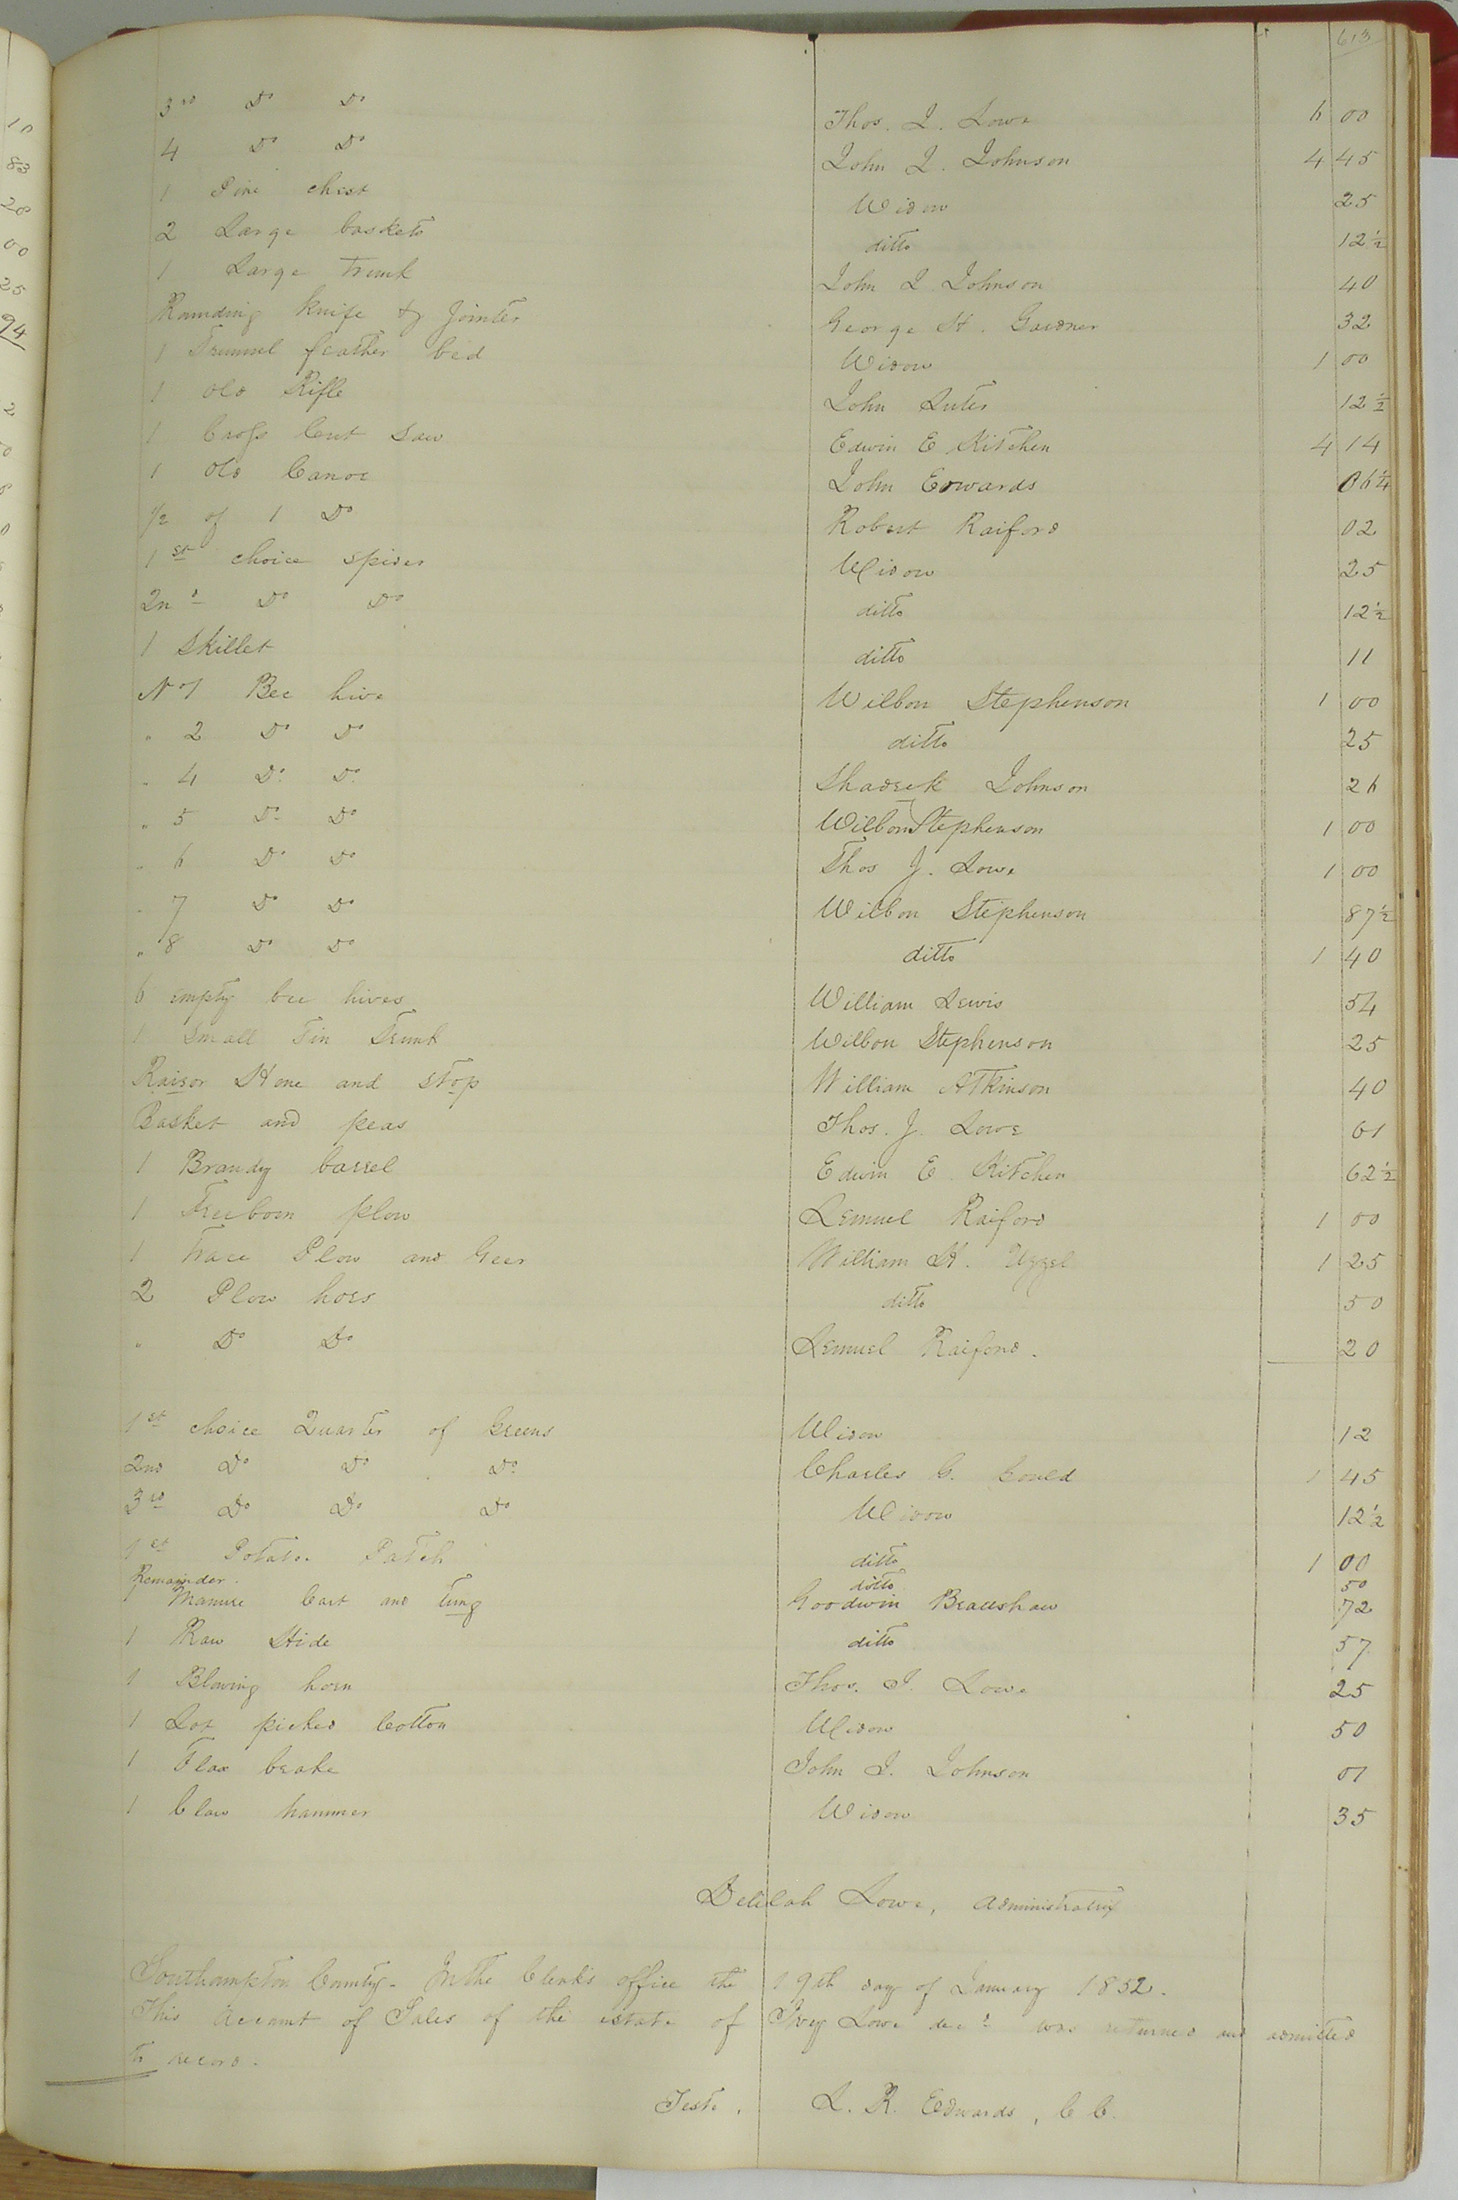 613
3rd Do Do Thos. J. Lowe 6 00
4 Do Do John J. Johnson 4 45
1 Pine chest Widow 25
2 Large baskets ditto 12½
1 Large trunk John J Johnson 40
Rounding knife & jointer George H. Gardner 32
1 Trunnel feather bed Widow 1 00
1 old Rifle John Luter 12½
1 Cross Cut Saw Edwin E Kitchen 4 14
1 old Canoe John Edwards 06¼
1/2 of 1 Do Robert Raiford 02
1st choice spider Widow 25
2nd Do Do ditto 12½
1 Skillet ditto 11
No 1 Bee hive Wilbon Stephenson 1 00
" 2 Do Do ditto 25
" 4 Do Do Shadrck Johnson 26
" 5 Do Do Wilbon Stephenson 1 00
" 6 Do Do Thos J. Lowe 1 00
" 7 Do Do Wilbon Stephenson 87½
" 8 Do Do ditto 1 40
6 empty bee hives William Lewis 54
1 Small Tin Trunk Wilbon Stephenson 25
Raisor Hone and stop William Atkinson 40
Basket and peas Thos. J. Lowe 61
1 Brandy barrel Edwin E Kitchen 62½
1 Freeborn plow Lemuel Raiford 1 00
1 Trace Plow and Geer William H. Uzzel 1 25
2 Plow hoes ditto 50
" Do Do Lemuel Raiford. 20
1st choice Quarter of Greens Widow 12
2nd Do Do Do Charles C. Gould 1 45
3rd Do Do Do Widow 12½
1st Potato Patch ditto 1 00
Remainder. ditto 50
1 Manure Cart and Tung Goodwin Bradshaw 72
1 Raw Hide ditto 57
1 Blowing horn Thos. J. Lowe 25
1 Lot picked Cotton Widow 50
1 Flax brake John J. Johnson 01
1 Claw hammer Widow 35
Delilah Lowe, Administratrix
Southampton County- In the Clerk's office the 19th day of January 1852.
This Account of Sales of the estate of Ivey Lowe decd was returned and admitted
to record.
Teste, L. R. Edwards, C C.
10
83
28
00
25
94